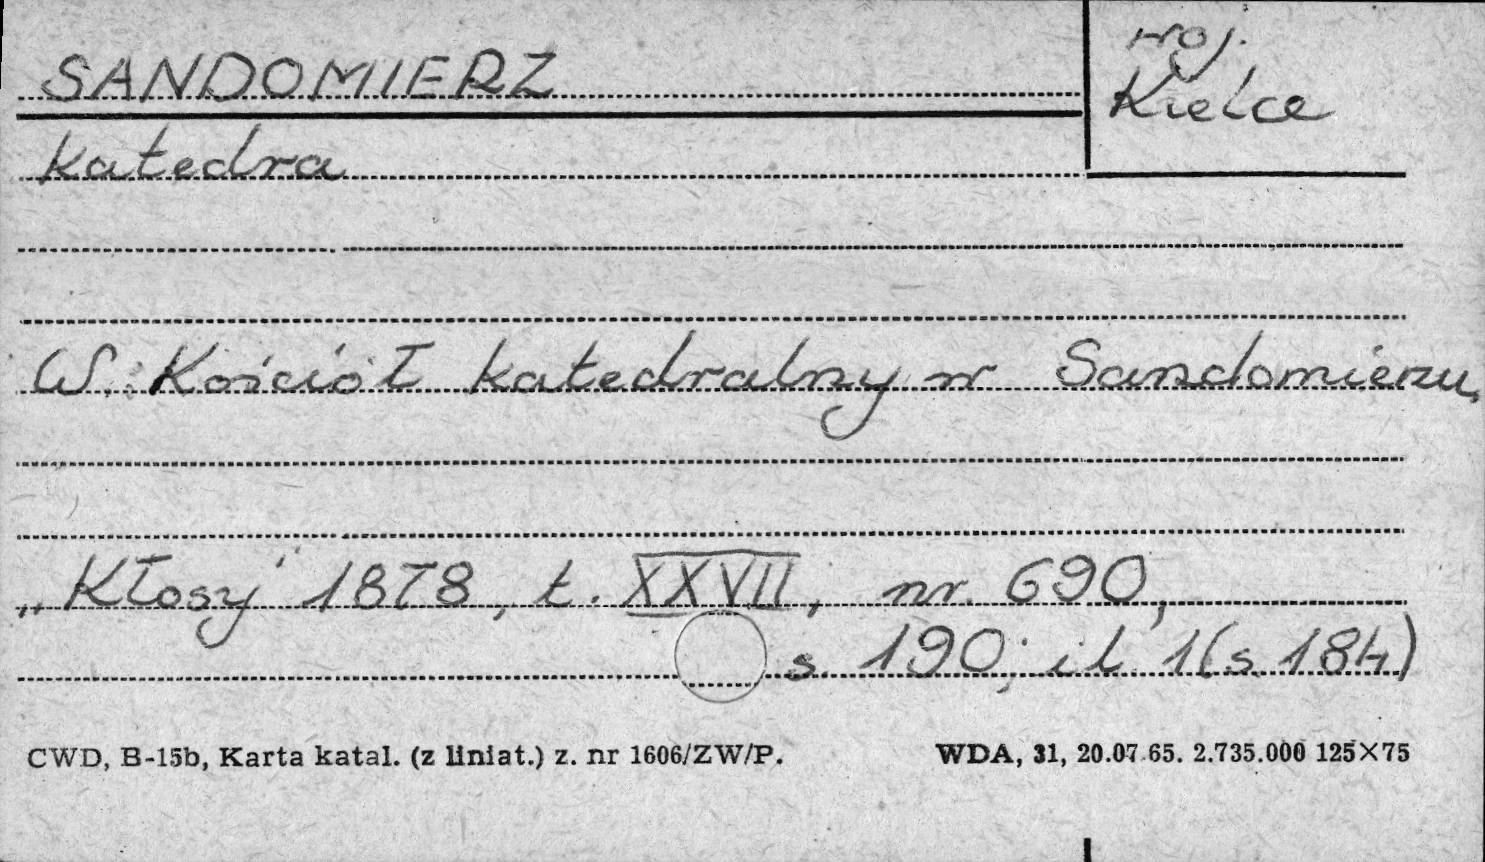 SANDOMIERZ
woj.
Kielce
Katedra
W.: Kościół katedralny w Sandomierzu,
„Kłosy" 1878, t. XXVII, nr. 690,
s. 190; il. 1 (s. 184)
CWD, B-15b, Karta katal. (z liniat.) z. nr 1606/ZW/P.
WDA, 31, 20.07.65. 2.735.000 125×75